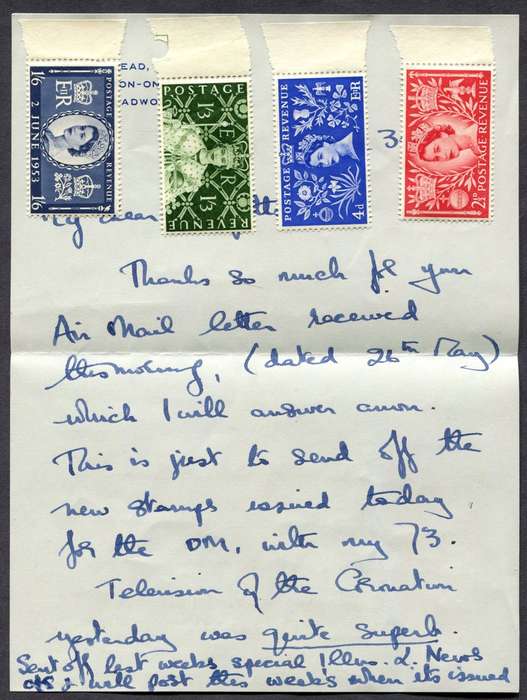 EAD,
ON-ON
ADWO
POSTAGE REVENUE
E II R
2 JUNE 1953
1/6 1/6
POSTAGE
REVENUE
E R
1/3 1/3
POSTAGE REVENUE
E II R
4d
POSTAGE REVENUE
2½D
3
My dear
Thanks so much for your
Air Mail letter received
this morning, (dated 26th May)
which I will answer anon.
This is just to send off the
new stamps issued today
for the OM, with my 73.
Television of the Coronation
yesterday was quite superb.
Sent off last weeks special Illus. L. News
& will post this weeks when its issued